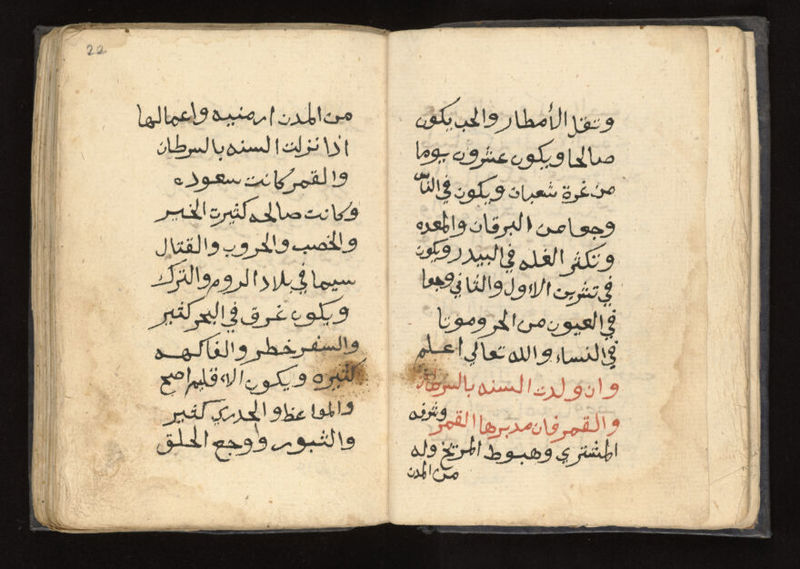 وتقل الأمطار والحب يكون
صالحا ويكون عشرون يوما
من غرة شعبان ويكون في النا
وجعا من اليرقان والمعده
وتكثر الغله في البيدر ويكون
في تشرين الاول والثاني وجعا
في العيون من الحر وموتا
في النساء والله تعالى اعلم
وان ولدت السنه بالسرطان
والقمر فان مدبرها القمر وشرفه
المشتري وهبوط المريخ وله
من المدن
22
من المدن ارمنيه واعمالها
اذا نزلت السنه بالسرطان
والقمر كانت سعوده
وكانت صالحه كثيرت الخير
والخصب والحروب والقتال
سيما في بلاد الروم والترك
ويكون غرق في البحر كثير
والسفر خطر والفاكهه
كثيره ويكون الاقليم اصح
والمواعظ والجدري كثير
والثبور واوجع الحلق